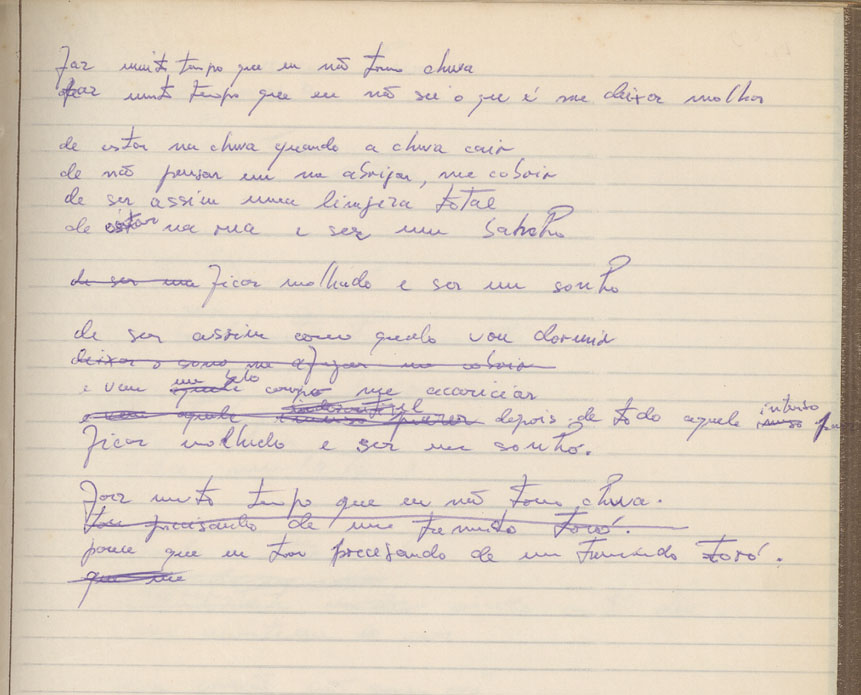 Faz muito tempo que eu não tomo chuva
faz muito tempo que eu não sei o que é me deixar molhar
de estar na chuva quando a chuva cair
de não pensar em me abrigar, me cobrir
de ser assim uma limpeza total
de estar na rua e ser um
de ser um ficar molhado e ser um sonho
de ser assim como quando vou dormir
deixar o sono me me cobrir
e vem um belo corpo me acariciar
e vem depois de todo aquele intenso
ficar molhado e ser um sonho.
Faz muito tempo que eu não tomo chuva.
tou precisando de um tremendo toró.
parece que eu tou precisando de um tremendo toró.
que me